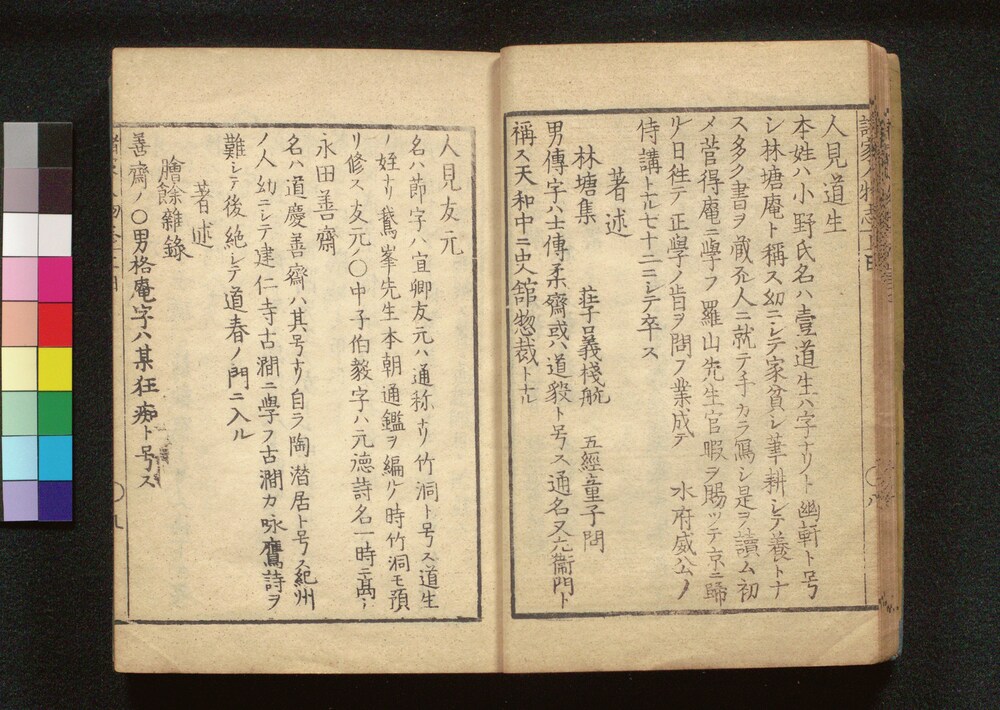 人見道生
本姓ハ小野氏名ハ壹道生ハ字ナリト幽軒ト号
シ林塘庵ト稱ス幼ニシテ家貧シ筆耕シテ養トナ
ス多ク書ヲ蔵ル人ニ就テ手カラ寫シ是ヲ讀ム初
メ菅得庵ニ學フ羅山先生官暇ヲ賜ツテ京ニ歸
ル日往テ正學ノ旨ヲ問フ業成テ 水府威公ノ
侍講トナル七十二ニシテ卒ス
著述
林塘集 莊子口義棧航 五經童子問
男傳字ハ士傳柔齋或ハ道毅ト号ス通名又六衞門ト
稱ス天和中ニ史舘惣裁トナル
人見友元
名ハ節字ハ宜卿友元ハ通称ナリ竹洞ト号ス道生
ノ姪ナリ鵞峯先生本朝通鑑ヲ編ル時竹洞モ預
リ修ス友元ノ〇中子伯毅字ハ元德詩名一時ニ高シ
永田善齋
名ハ道慶善齋ハ其号ナリ自ラ陶潜居ト号ス紀州
ノ人幼ニシテ建仁寺古澗ニ學フ古澗カ咏鷹詩ヲ
難シテ後絶シテ道春ノ門ニ入ル
著述
膾餘雜錄
善齋ノ〇男格庵字ハ某狂痴ト号ス